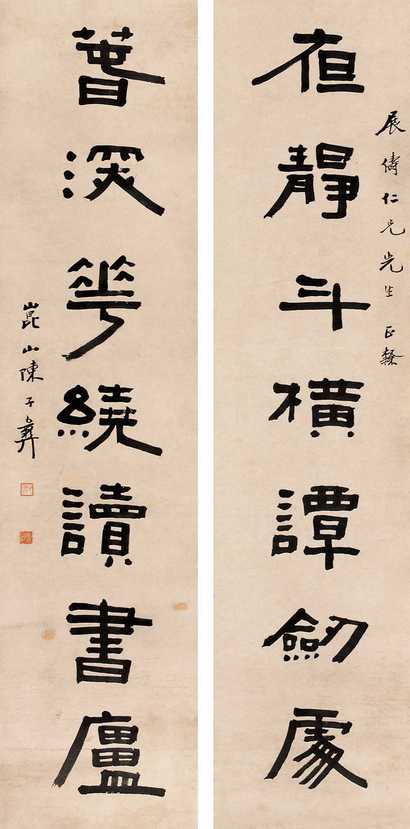 展倚仁兄先生正雅
夜靜斗橫譚劒處
萅深華繞讀書廬
崑山陳子彝